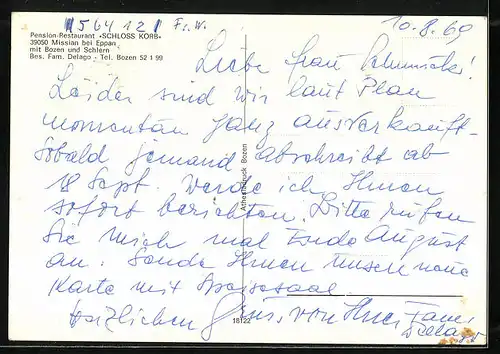 564121 Fr. W.
10.8.69
Pension-Restaurant «SCHLOSS KORB»
39050 Missian bei Eppan
mit Bozen und Schlern
Bes. Fam. Delago - Tel. Bozen 52 1 99
Liebe Frau
Leider sind wir laut Plan
momentan ganz ausverkauft-
Sobald jemand abschreibt ab
18 Sept. werde ich Ihnen
sofort berichten. Bitte rufen
Sie mich mal Ende August
an. Sende Ihnen unsere neue
Karte mit Speisesaal
herzlichen Gruss von Ihrer Fam.
Delago
Athesiadruck Bozen
18122